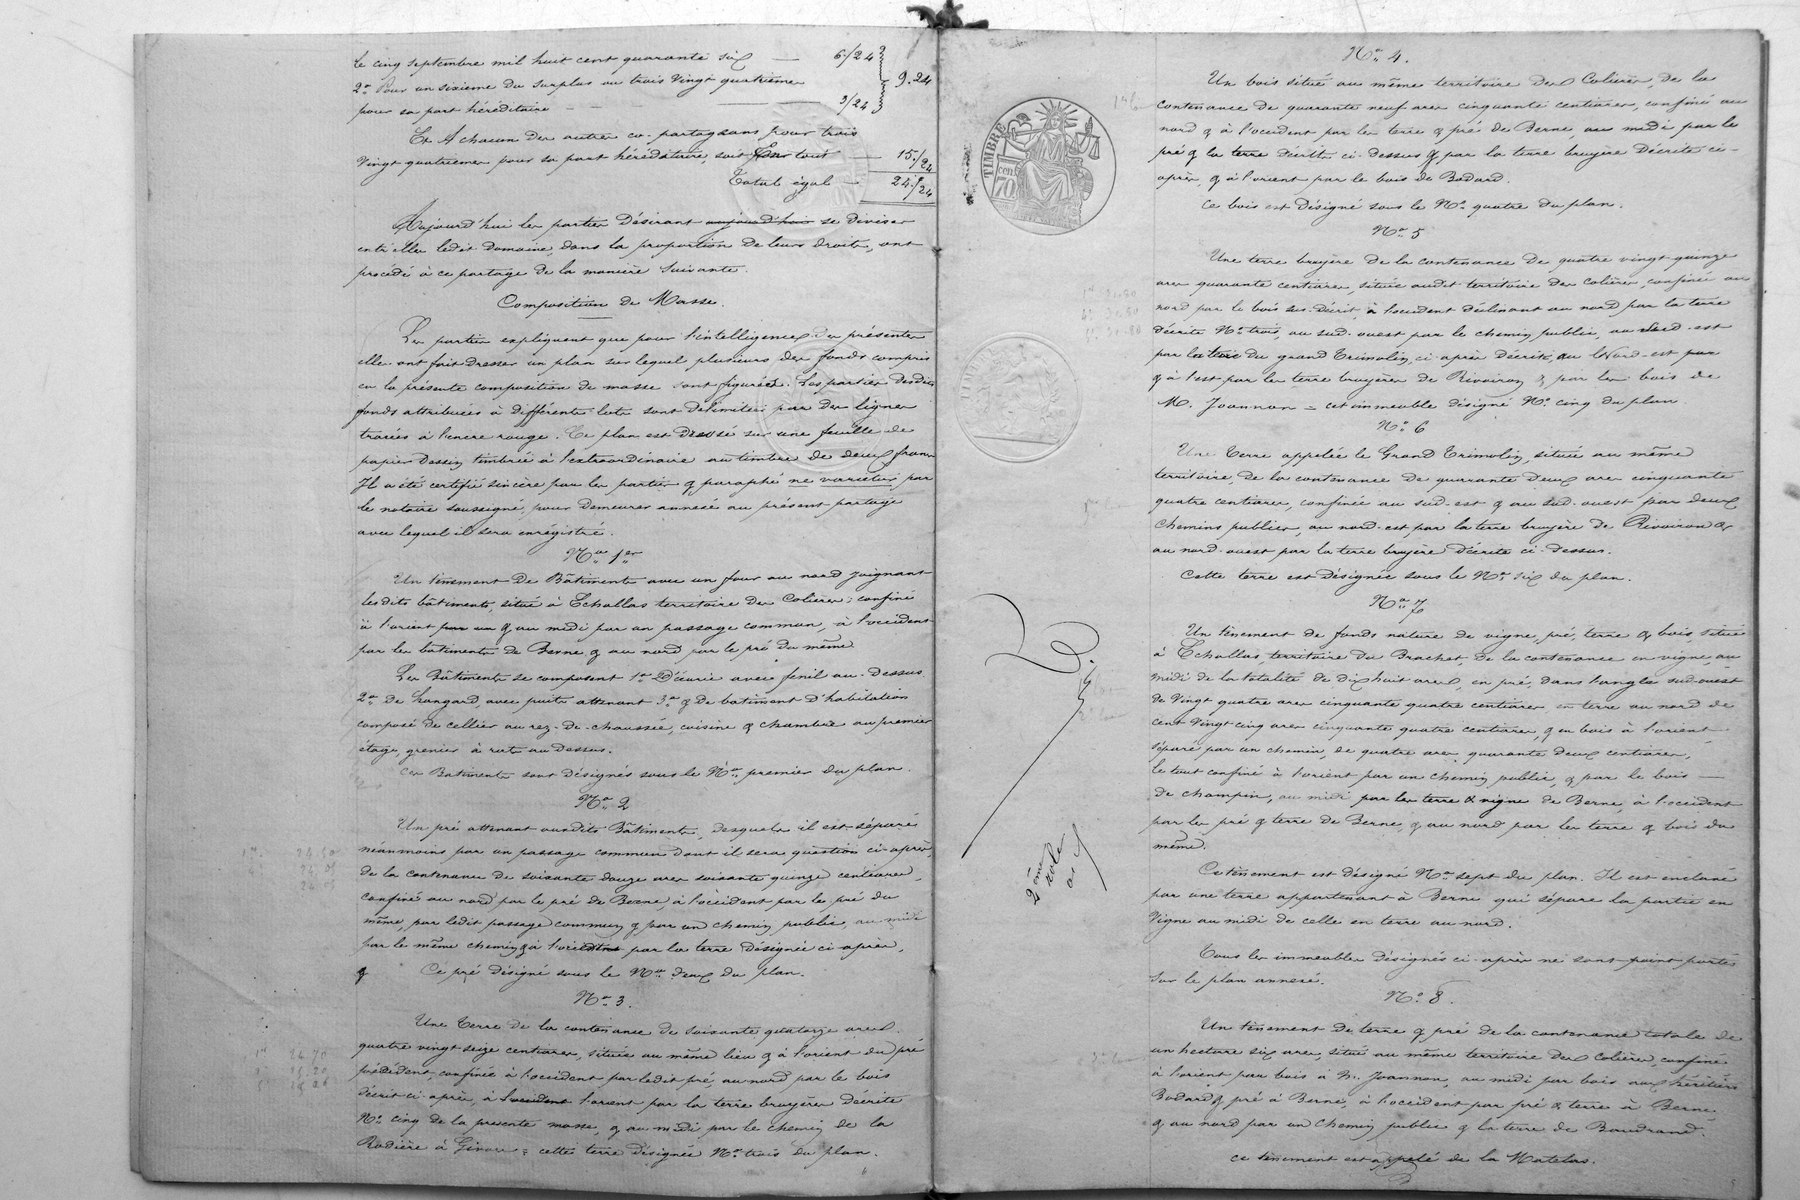 le cinq septembre mil huit cent quarante six — 6/24
2º Pour un sixième du surplus ou trois vingt quatrième
pour sa part héréditaire — 3/24
9.24
Et A chacun des autres co-partageans pour trois
vingt quatrièmes pour sa part héréditaire, soit pour tous — 15/24
Total égal — 24/24
Aujourd'hui les parties désirant aujourd'hui se diviser
entr'elles ledit domaine, dans la proportion de leurs droits, ont
procédé à ce partage de la manière suivante.
Composition de Masse.
Les parties expliquent que pour l'intelligence des présentes
elles ont fait dresser un plan sur lequel plusieurs des fonds compris
en la présente composition de masse sont figurés. Les parties desdits
fonds attribuées à différents lots sont délimitées par des lignes
tracées à l'encre rouge. Ce plan est dressé sur une feuille de
papier dessin timbrée à l'extraordinaire au timbre de deux francs
Il a été certifié sincère par les parties & paraphé ne varietur par
le notaire soussigné, pour demeurer annexé au présent partage
avec lequel il sera enrégistré.
Nº 1er
Un tènement de Bâtiments avec un four au nord joignant
lesdits bâtiments, situé à Echallas territoire des Colières; confiné
à l'orient par un & au midi par un passage commun, à l'occident
par les bâtiments de Berne & au nord par le pré du même
Les Bâtiments se composent 1º D'écurie avec fenil au-dessus
2º de hangard, avec puits attenant 3º & de bâtiment d'habitation
composé de cellier au rez-de-chaussée, cuisine & chambre au premier
étage, grenier à rats au dessus.
Ces Batiments sont désignés sous le Nº premier du plan.
Nº 2
Un pré attenant auxdits Bâtiments, desquels il est séparé
néanmoins par un passage commun dont il sera question ci-après,
de la contenance de soixante douze ares soixante quinze centiares,
confiné au nord par le pré de Berne, à l'occident par le pré du
même, par ledit passage commun & par un chemin public, au midi
par le même chemin & à l'orient par la terre désignée ci-après.
& Ce pré désigné sous le Nº deux du plan.
Nº 3.
Une Terre de la contenance de soixante quatorze ares
quatre vingt seize centiares, située au même lieu & à l'orient du pré
précédent, confinée à l'occident par ledit pré, au nord par le bois
décrit ci-après, à l'occident l'orient par la terre bruyère décrite
Nº cinq de la présente masse, & au midi par le chemin de la
Rodière à Givors = cette terre désignée Nº trois du plan.
TIMBRE
70 cen
2ème rôle
Nº 4.
Un bois situé au même territoire des Colières, de la
contenance de quarante neuf ares cinquante centiares, confiné au
nord & à l'occident par les terre & pré de Berne, au midi par le
pré & la terre décrits ci-dessus & par la terre bruyère décrite ci-
après, & à l'orient par le bois de Bodard.
Ce bois est désigné sous le Nº quatre du plan.
Nº 5
Une terre bruyère de la contenance de quatre vingt-quinze
ares quarante centiares, située audit territoire des Colières, confinée au
nord par le bois sus-décrit, à l'occident déclinant au nord par la terre
décrite Nº trois, au sud-ouest par le chemin public, au sud-est
par la terre du grand Trimolin, ci-après décrite, au Nord-est par
& à l'est par les terre bruyères de Rivoiron & par les bois de
M. Joannon = cet immeuble désigné Nº cinq du plan
Nº 6
Une Terre appelée le Grand Trimolin, située au même
territoire, de la contenance de quarante deux ares cinquante
quatre centiares, confinée au sud-est & au sud-ouest par deux
chemins publics, au nord-est par la terre bruyère de Rivoiron &
au nord-ouest par la terre bruyère décrite ci-dessus.
Cette terre est désignée sous le Nº six du plan.
Nº 7
Un tènement de fonds nature de vigne, pré, terre & bois, situé
à Echallas, territoire du Brachet, de la contenance en vigne, au
midi de la totalité de dix huit ares, en pré, dans l'angle sud-ouest
de vingt quatre ares cinquante quatre centiares, en terre au nord de
cent vingt cinq ares cinquante quatre centiares, & en bois à l'orient
séparé par un chemin, de quatre ares quarante deux centiares,
le tout confiné à l'orient par un chemin public, & par le bois —
de champin, au midi par les terre & vigne de Berne, à l'occident
par les pré & terre de Berne, & au nord par les terre & bois du
même.
Ce tènement est désigné Nº sept du plan. Il est enclavé
par une terre appartenant à Berne qui sépare la partie en
vigne au midi de celle en terre au nord.
Tous les immeubles désignés ci-après ne sont point portés
sur le plan annexé.
Nº 8.
Un tènement de terre & pré de la contenance totale de
un hectare six ares, situé au même territoire des Colières, confiné
à l'orient par bois à M. Joannon, au midi par bois aux héritiers
Bodard & pré à Berne, à l'occident par pré & terre à Berne
& au nord par un chemin public & la terre de Baudrand.
Ce tènement est appelé de la Matelas.